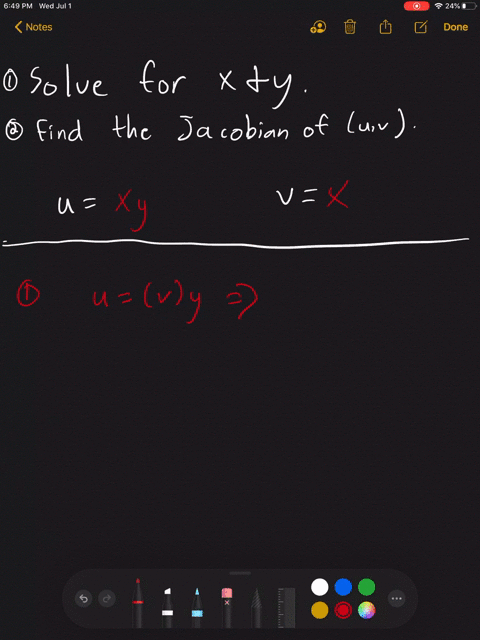 6:49 PM Wed Jul 1 24%
Notes Done
① Solve for x & y.
② Find the Jacobian of (u,v).
u = xy v = x
① u = (v)y ⇒